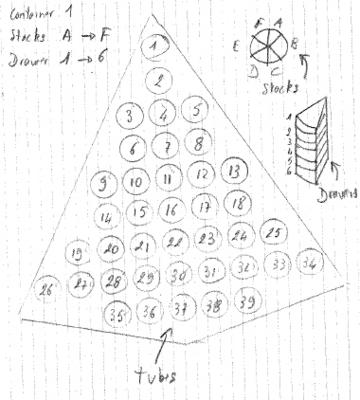 Container 1
Stacks A → F
Drawer 1 → 6
F A
E B
D C
Stacks
1
2
3
4
5
6
Drawers
1
2
3 4 5
6 7 8
9 10 11 12 13
14 15 16 17 18
19 20 21 22 23 24 25
26 27 28 29 30 31 32 33 34
35 36 37 38 39
tubes